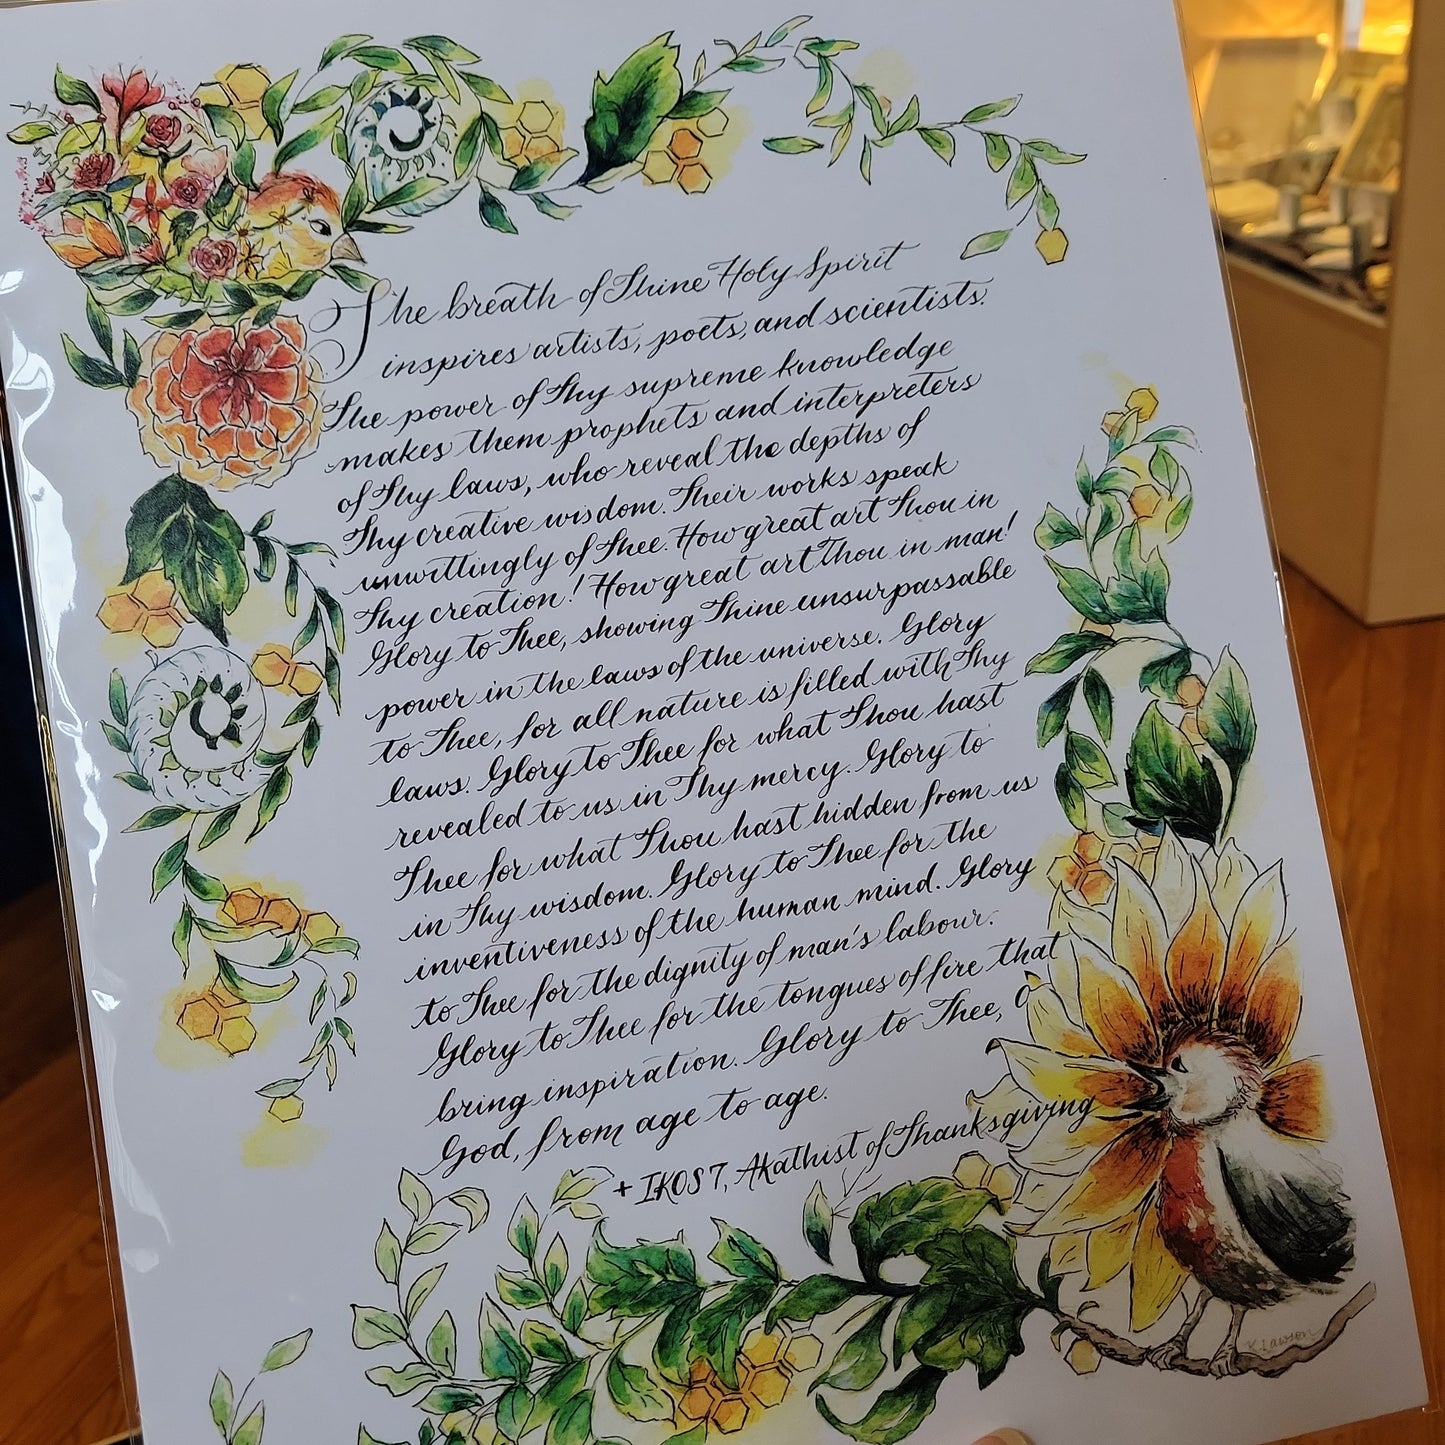 The breath of Thine Holy Spirit
inspires artists, poets, and scientists.
The power of Thy supreme knowledge
makes them prophets and interpreters
of Thy laws, who reveal the depths of
Thy creative wisdom. Their works speak
unwittingly of Thee. How great art Thou in
Thy creation! How great art Thou in man!
Glory to Thee, showing Thine unsurpassable
power in the laws of the universe. Glory
to Thee, for all nature is filled with Thy
laws. Glory to Thee for what Thou hast
revealed to us in Thy mercy. Glory to
Thee for what Thou hast hidden from us
in Thy wisdom. Glory to Thee for the
inventiveness of the human mind. Glory
to Thee for the dignity of man's labour.
Glory to Thee for the tongues of fire that
bring inspiration. Glory to Thee, O
God, from age to age.
+ IKOS 7, Akathist of Thanksgiving
K. Lawson